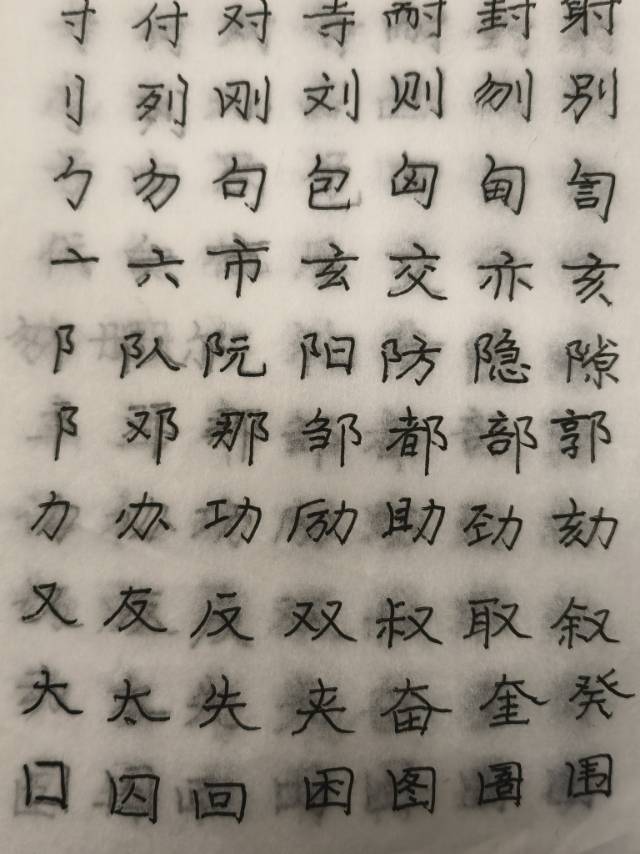 寸 付 对 寺 耐 封 射
刂 列 刚 刘 则 刎 别
勹 勿 句 包 匈 甸 訇
亠 六 市 玄 交 亦 亥
阝 队 阮 阳 防 隐 隙
阝 邓 那 邹 都 部 郭
力 办 功 励 助 劲 劾
又 友 反 双 叔 取 叙
大 太 失 夹 奋 奎 癸
囗 囚 回 困 图 围